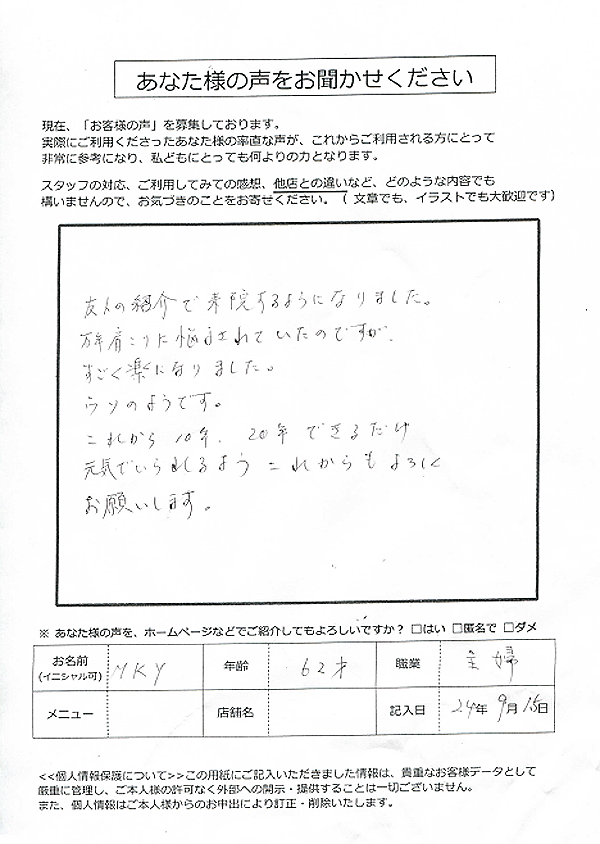 あなた様の声をお聞かせください
現在、「お客様の声」を募集しております。
実際にご利用くださったあなた様の率直な声が、これからご利用される方にとって
非常に参考になり、私どもにとっても何よりの力となります。
スタッフの対応、ご利用してみての感想、他店との違いなど、どのような内容でも
構いませんので、お気づきのことをお寄せください。（ 文章でも、イラストでも大歓迎です）
友人の紹介で来院するようになりました。
万年肩こりに悩まされていたのですが、
すごく楽になりました。
ウソのようです。
これから10年、20年できるだけ
元気でいられるよう これからもよろしく
お願いします。
※ あなた様の声を、ホームページなどでご紹介してもよろしいですか？ □はい □匿名で □ダメ
お名前 MKY 年齢 62才 職業 主婦
(イニシャル可)
メニュー 店舗名 記入日 24年 9月 15日
<<個人情報保護について>>この用紙にご記入いただきました情報は、貴重なお客様データとして
厳重に管理し、ご本人様の許可なく外部への開示・提供することは一切ございません。
また、個人情報はご本人様からのお申出により訂正・削除いたします。